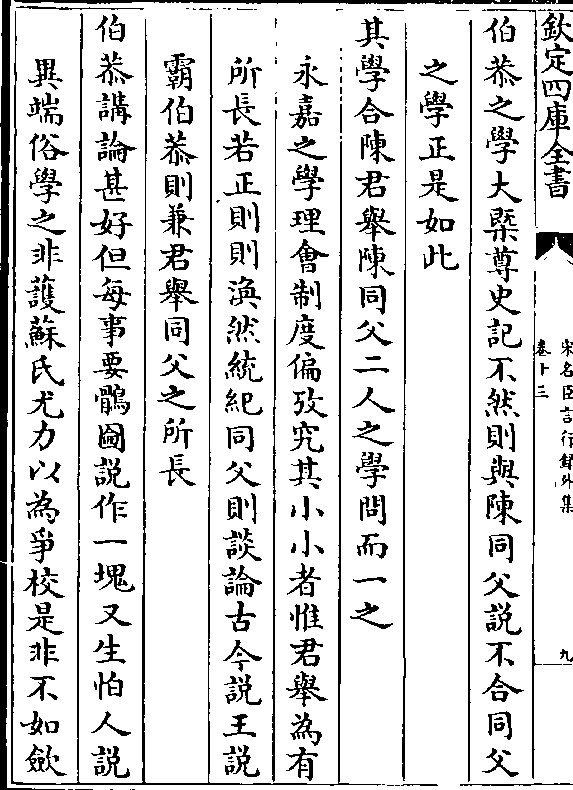 欽定四庫全書
宋名臣言行録外集
卷十三
九
伯恭之學大槩尊史記不然則與陳同父説不合同父
之學正是如此
其學合陳君舉陳同父二人之學問而一之
永嘉之學理㑹制度偏攷究其小小者惟君舉為有
所長若正則則渙然統紀同父則談論古今説王説
霸伯恭則兼君舉同父之所長
伯恭講論甚好但每事要鶻圇説作一塊又生怕人説
異端俗學之非護蘇氏尤力以為爭校是非不如斂